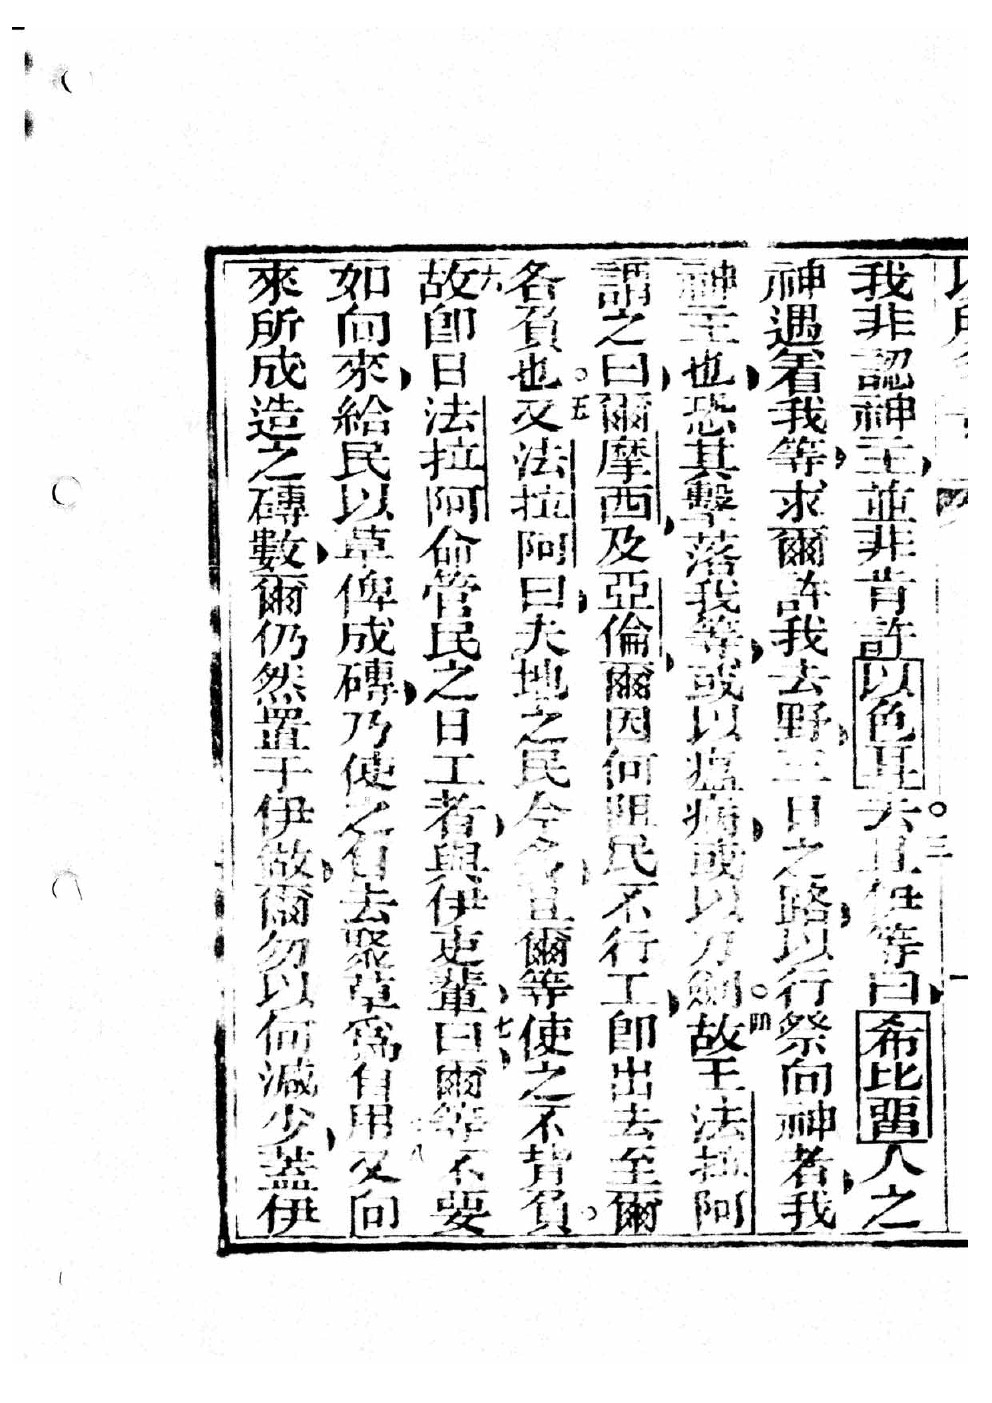 我非認神主並非肯許以色耳去且伊等曰希比畱人之
神遇着我等求爾許我去野三日之路以行祭向神者我
神主也恐其擊落我等或以瘟病或以刀劍故王法拉阿
謂之曰爾摩西及亞倫爾因何阻民不行工卽出去至爾
各負也又法拉阿曰夫地之民今多且爾等使之不背負
故卽日法拉阿命管民之日工者與伊吏輩曰爾等不要
如向來給民以草俾成磚乃使之自去聚草爲自用又向
來所成造之磚數爾仍然置于伊做爾勿以何減少蓋伊
三
四
五
六
七
八